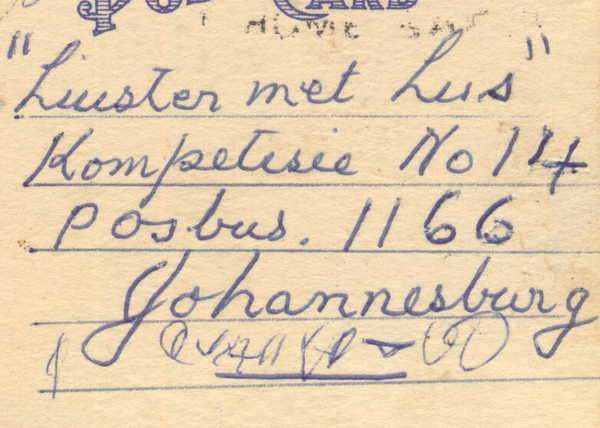 POST CARD
"Luister met Lus"
Kompetisie No 14
posbus. 1166
Johannesburg